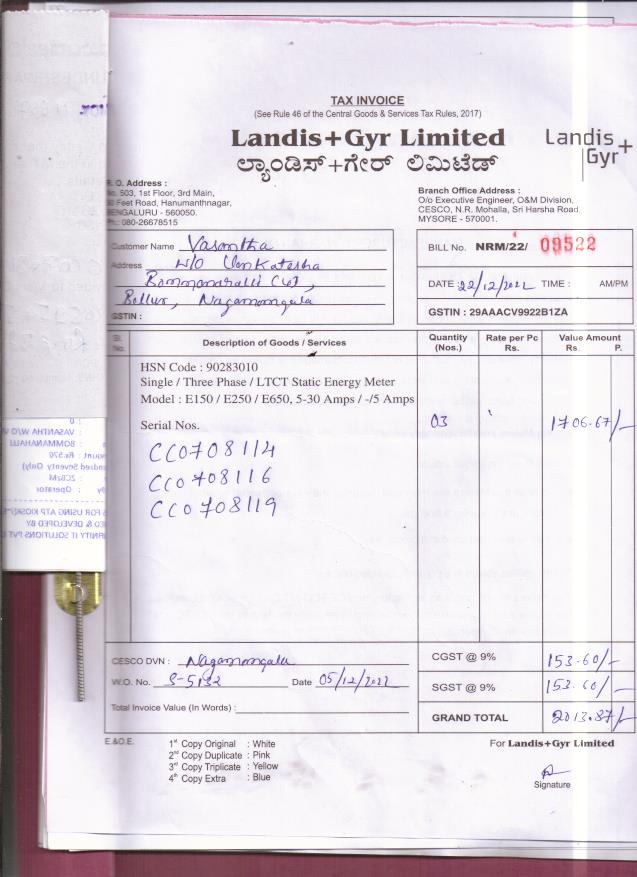 TAX INVOICE
(See Rule 46 of the Central Goods & Services Tax Rules, 2017)
Landis+Gyr Limited
ಲ್ಯಾಂಡಿಸ್+ಗೇರ್ ಲಿಮಿಟೆಡ್
Landis+
Gyr
R. O. Address :
No. 503, 1st Floor, 3rd Main,
Feet Road, Hanumanthnagar,
BENGALURU - 560050.
080-26678515
Branch Office Address :
O/o Executive Engineer, O&M Division,
CESCO, N.R. Mohalla, Sri Harsha Road,
MYSORE - 570001.
Customer Name Vasantha
Address W/O Venkatesha
Bellur, Nagamangala
GSTIN :
BILL No. NRM/22/ 09522
DATE : 22/12/2022 TIME : AM/PM
GSTIN : 29AAACV9922B1ZA
Sl. No. Description of Goods / Services Quantity (Nos.) Rate per Pc Rs. Value Amount Rs. P.
HSN Code : 90283010
Single / Three Phase / LTCT Static Energy Meter
Model : E150 / E250 / E650, 5-30 Amps / -/5 Amps
Serial Nos. 03 1706.67/-
CC0708114
CC0708116
CC0708119
CESCO DVN : Nagamangala
W.O. No. S-5132 Date 05/12/2022
Total Invoice Value (In Words) :
CGST @ 9% 153.60/-
SGST @ 9% 153.60/-
GRAND TOTAL 2013.87/-
E.&O.E.
1st Copy Original : White
2nd Copy Duplicate : Pink
3rd Copy Triplicate : Yellow
4th Copy Extra : Blue
For Landis+Gyr Limited
Signature